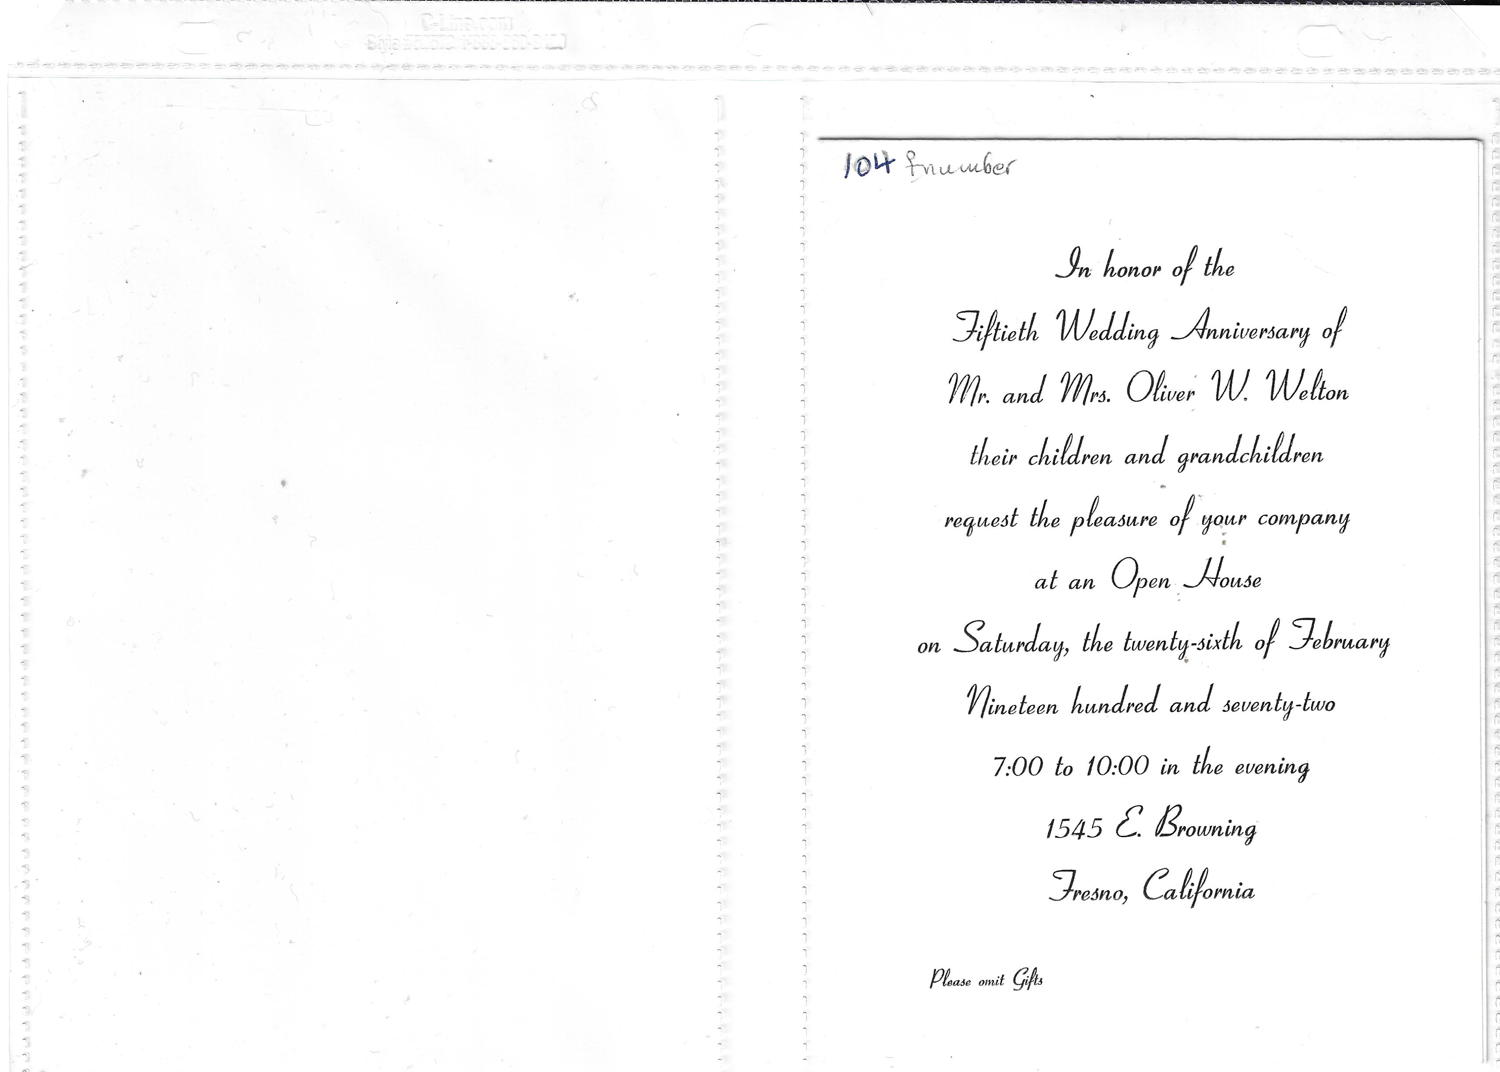 104 fnumber
In honor of the
Fiftieth Wedding Anniversary of
Mr. and Mrs. Oliver W. Welton
their children and grandchildren
request the pleasure of your company
at an Open House
on Saturday, the twenty-sixth of February
Nineteen hundred and seventy-two
7:00 to 10:00 in the evening
1545 E. Browning
Fresno, California
Please omit Gifts